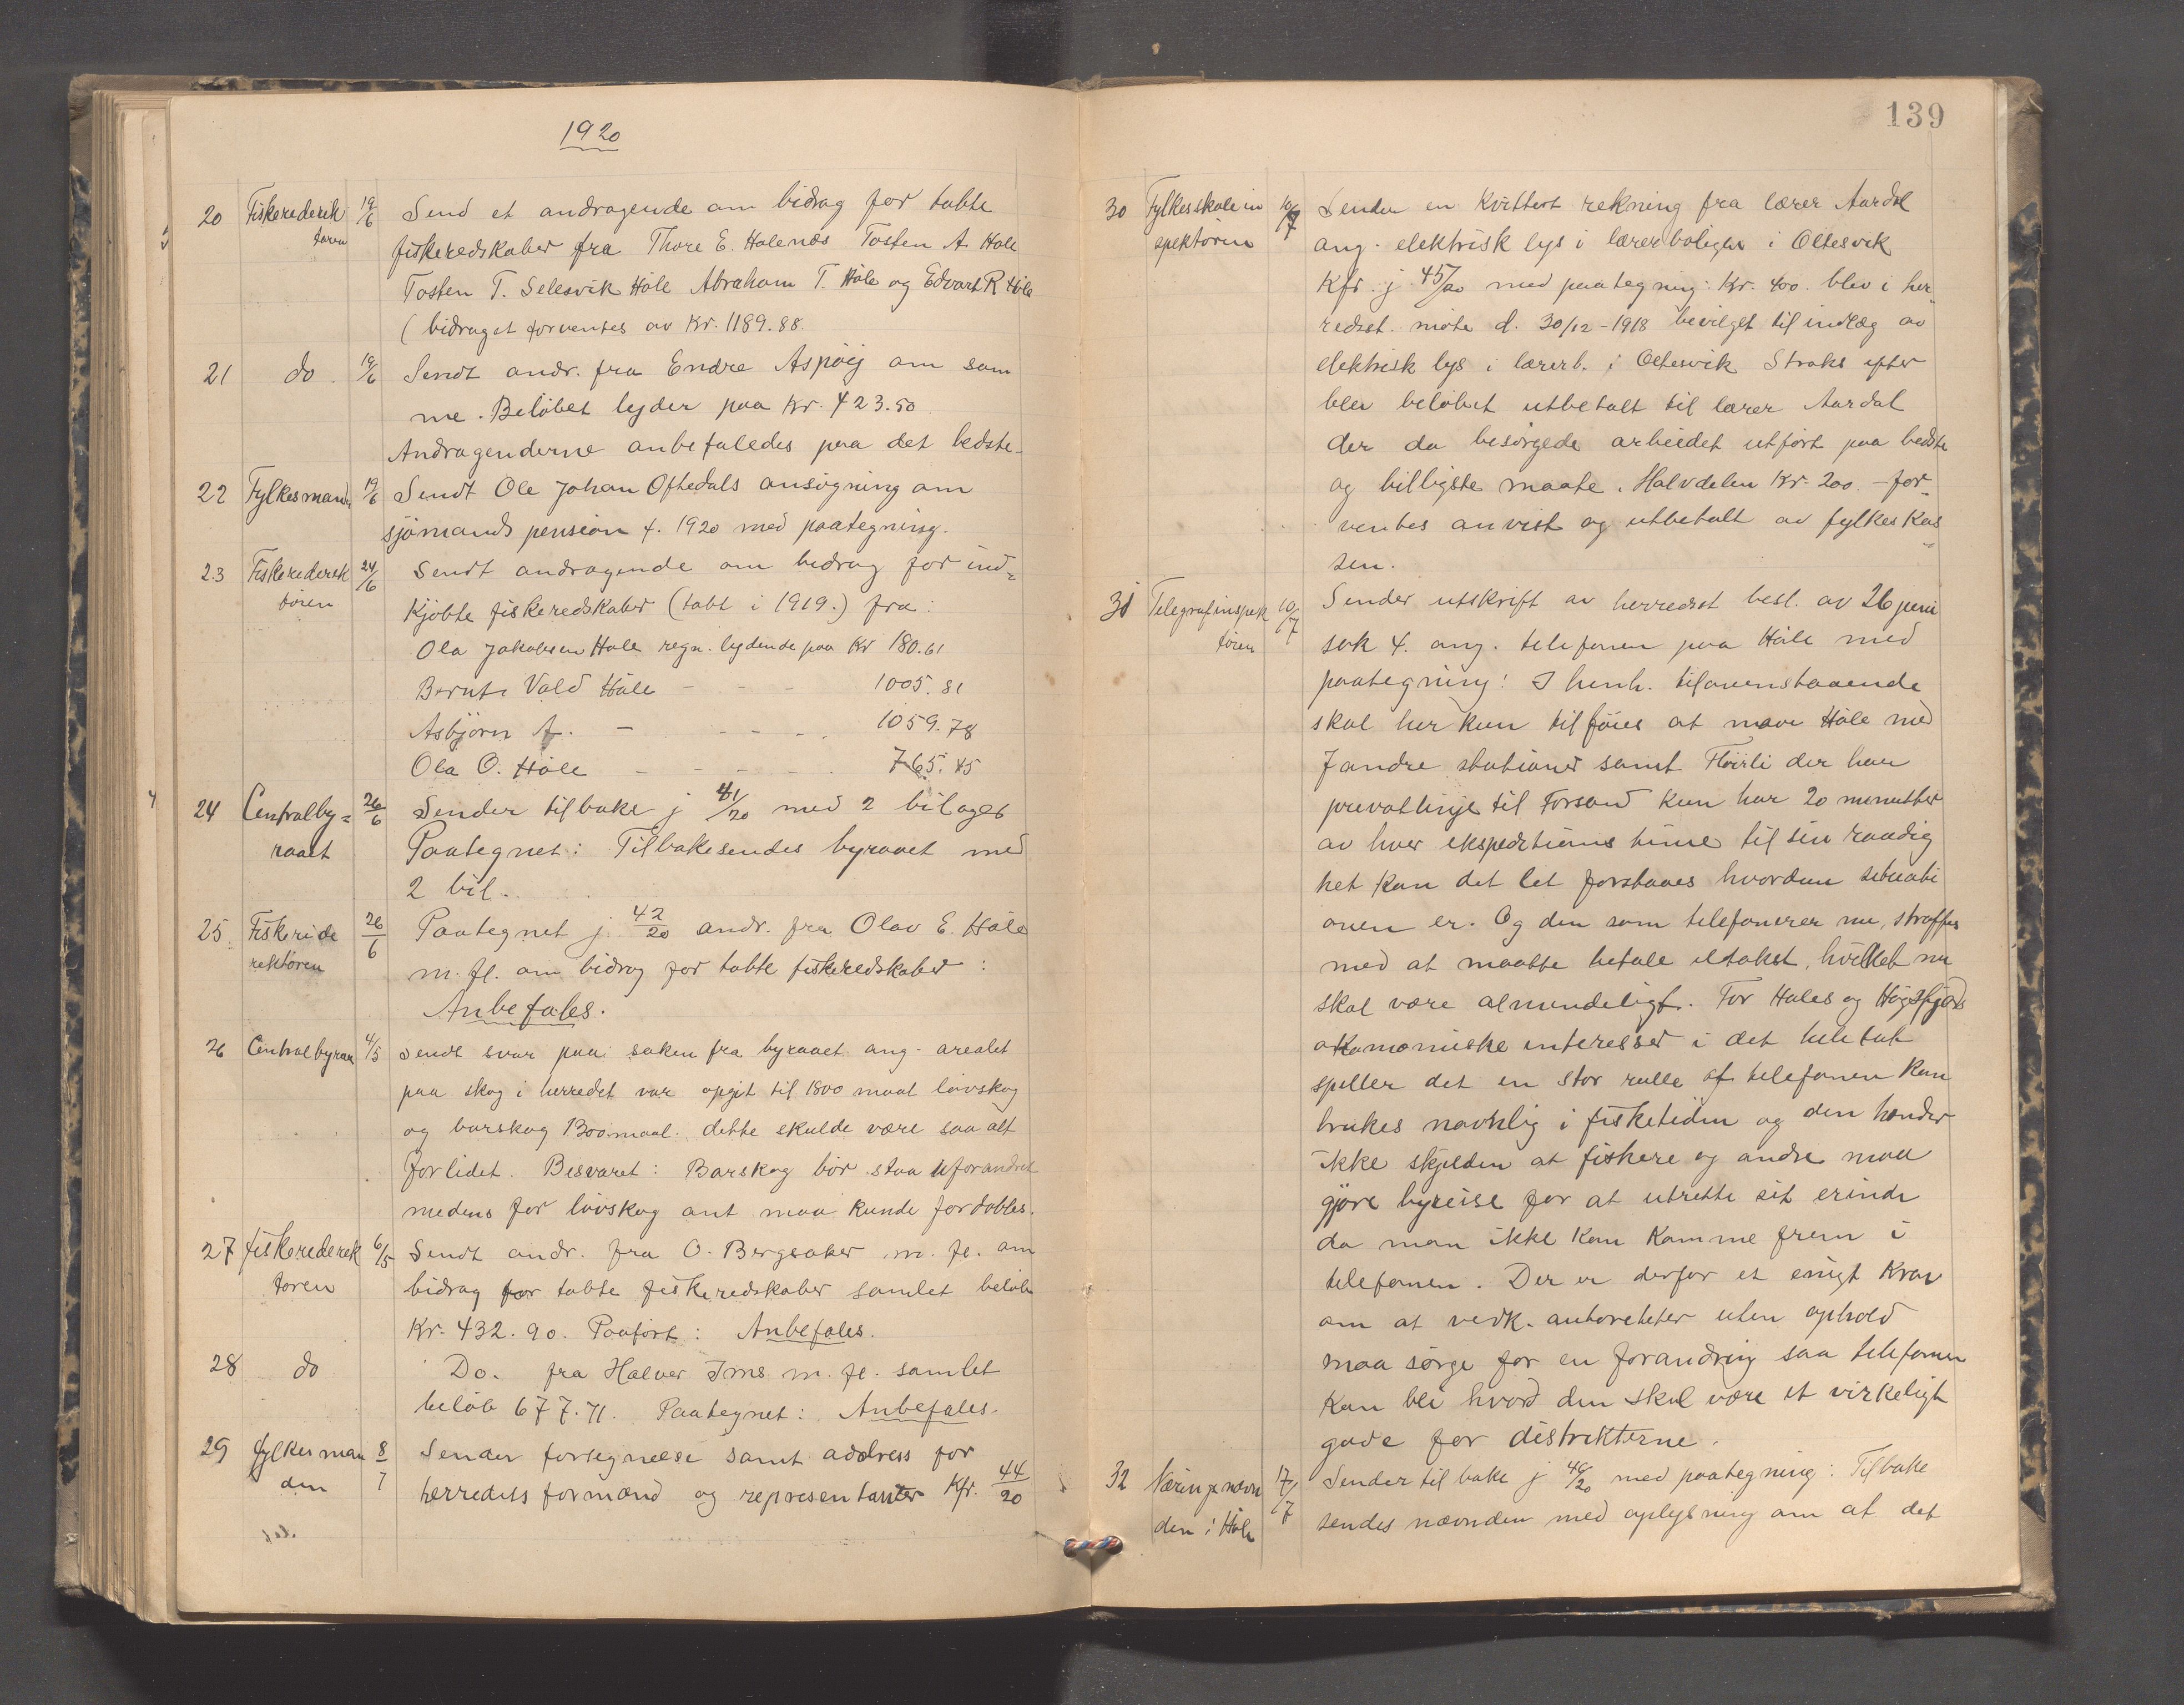 1920
20 Fiskeridirek 19/6 Send et andragende om bidrag for tabte
tøren fiskeredskaber fra Thore E. Halenæs Tosten A Hole
Tosten T. Selesvik Høle Abraham T. Høle og Edvart R Høle
( bidraget forventes av Kr. 1189.88.
21 do. 19/6 Sendt andr. fra Endre Aspøig om sam
me. Beløbet lyder paa Kr. 423.50
Andragenderne anbefaledes paa det bedste-
22 Fylkesmand 19/6 Sendt Ole Johan Oftedals ansøgning om
sjømands pension f. 1920 med paategning.
23 Fiskeridirek 24/6 Sendt andragende om bidrag for ind=
tøren Kjøbte fiskeredskaber (tabt i 1919.) fra:
Ola Jakobsen Høle regn. lydende paa Kr 180.61
Bernt Vald Høle - - - 1005.81
Asbjørn A. - - - - 1059.78
Ola O. Høle - - - - 765.45
24 Centralby= 26/6 Sender tilbake j 41/20 med 2 bilager
raaet Paategnet: Tilbakesendes byraaet med
2 bil.
25. Fiskeride 26/6 Paategnet j 42/20 andr. fra Olav E. Høle
rektøren m. fl. om bidrag for tabte fiskeredskaber:
Anbefales.
26 Centralbyraa 4/5 Sendt svar paa saken fra byraaet ang. arealet
paa skog i herredet var opgit til 1800 maal løvskog
og barskog 1300 maal. dette skulde være saa alt
for lidet. Besvaret: Barskog bør staa uforandret
medens for løvskog ant. maa kunde fordobles.
27 fiskeridirek 6/5 Sendt andr. fra O. Bergsaker m. fl. om
tøren bidrag for tabte fiskeredskaber samlet beløb
Kr. 432.90. Paaført: Anbefales.
28 do Do. fra Halvor Ims m. fl. samlet
beløb 677.71. Paategnet: Anbefales.
29 fylkesman 8/7 Sender fortegnelse samt address for
den herredets formænd og representanter Kfr. 44/20
139
30 Fylkesskolein 10/7 Sender en Kvittert rekning fra lærer Aardal
spektøren ang. elektrisk lys i lærerboligen i Oltesvik
Kfr. j 45/20 med paategning: Kr. 400. blev i her=
redsst. møte d. 30/12-1918 bevilget til indlæg av
elektrisk lys i lærerb. i Oltesvik Straks efter
blev beløbet utbetalt til lærer Aardal
der da besørgede arbeidet utført paa bedste
og billigste maate. Halvdelen Kr. 200.- for=
ventes anvist og utbetalt av fylkeskas
sen.
31 Telegrafinspek 10/7 Sender utskrift av herredsst besl. av 26 juni
tøren sak 4. ang. telefonen paa Høle med
paategning: I henh. til ovenstaaende
skal her kun tilføies at naar Høle med
7 andre stationer samt Fløirli der har
prevatlinje til Forsand kun har 20 menutter
av hver ekspeditions time til sin raadig
het kan det let forstaaes hvordan situati
onen er. Og den som telefonerer nu, straffes
med at maatte betale iltakst, hvilket nu
skal være almindeligt. For Høles og Høgsfjords
økonomiske interesser i det hele tat
speller det en stor rulle at telefonen kan
brukes navnlig i fisketiden og den hænder
ikke skjelden at fiskere og andre maa
gjøre byreise for at utrette sit erinde
da man ikke kan komme frem i
telefonen. Der er derfor et enigt krav
om at vedk. autoreteter uten ophold
maa sørge for en forandring saa telefonen
kan bli hvad den skal være et virkeligt
gode for distrikterne.
32 Næringsnævn 17/7 Sender tilbake j 46/20 med paategning: Tilbake
den i Høle sendes nævnden med oplysning om at det